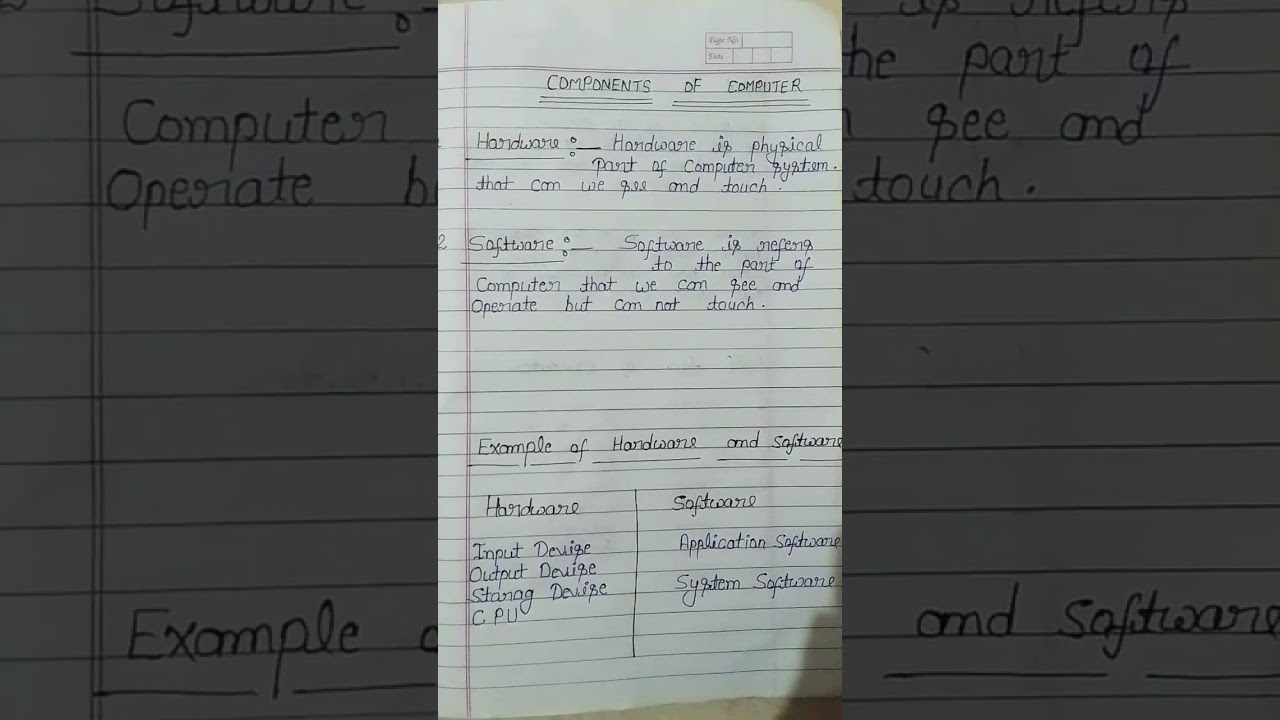 Page No.
Date
COMPONENTS OF COMPUTER
Hardware :— Hardware is physical
part of computer system.
that can we see and touch.
2 Software :— Software is refers
to the part of
Computer that we can see and
Operate but can not touch.
Example of Hardware and Software
Hardware Software
Input Devise Application Software
Output Devise
Starag Devise System Software
CPU